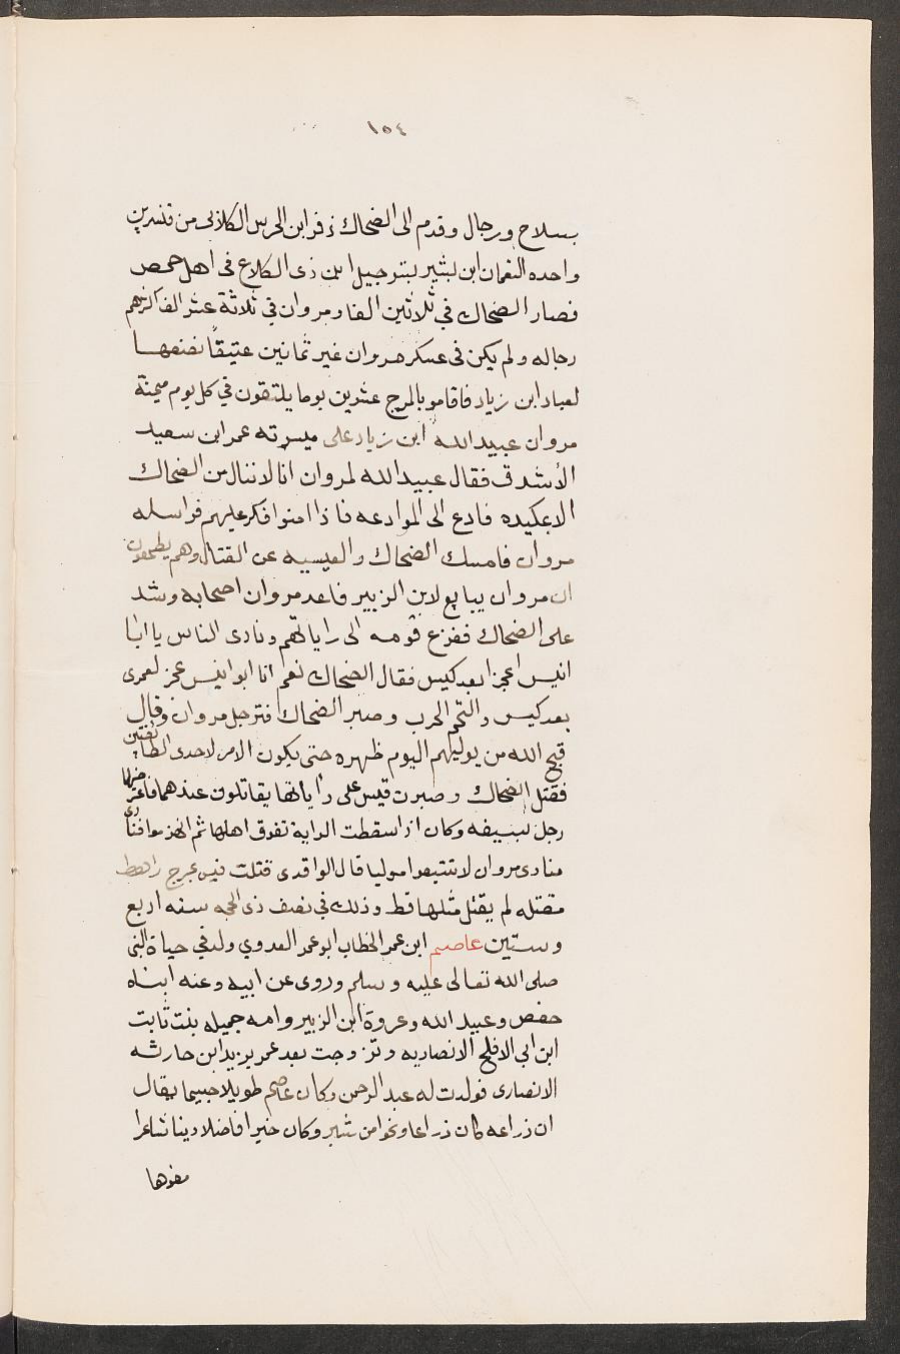 ١٥٤
بسلاح ورجال وقدم الى الضحاك زفر ابن الحرس الكلابى من قنسرين
واحده النعمان ابن بشير بشرجيل ابن ذى الكلاع فى اهل حمص
فصار الضحاك في ثلاثين الفا ومروان في ثلاثة عشر الف اكثرهم
رجاله ولم يكن فى عسكر مروان غير ثمانين عتيقاً نصفها
لعباد ابن زياد فاقامو بالمرج عشرين يوما يلتقون في كل يوم ميمنة
مروان عبيد الله ابن زياد على ميسرته عمر ابن سعيد
الأشدق فقال عبيد الله لمروان انا لا ننال من الضحاك
الا بمكيده فادع الى الموادعه فاذا امنوا فكر عليهم فراسله
مروان فامسك الضحاك والقيسيه عن القتال وهم يطمعون
ان مروان يبايع لابن الزبير فاعد مروان اصحابه وشد
على الضحاك ففزع قومه الى راياتهم ونادى الناس يا ابا
انيس اعجزا بعد كيس فقال الضحاك نعم انا ابو انيس عجز لعمرى
بعد كيس والتحم الحرب وصبر الضحاك فترجل مروان وقال
قبح الله من يوليهم اليوم ظهره حتى يكون الامر لاحدى الطائفتين
فقتل الضحاك وصبرت قيس على راياتها يقاتلون عندها فاعترضها
رجل بسيفه وكان اذا سقطت الراية تفرق اهلها ثم انهزموا فنادى
منادى مروان لا تتبعوا موليا قال الواقدى قتلت قيس بمرج راهط
مقتله لم يقتل مثلها قط وذلك في نصف ذى الحجه سنه اربع
وستين عاصم ابن عمر الخطاب ابو عمر العدوي ولد في حياة النبى
صلى الله تعالى عليه وسلم وروى عن ابيه وعنه ابناه
حفص وعبيد الله وعروة ابن الزبير وامه جميله بنت ثابت
ابن ابي الافلح الانصاريه وتزوجت بعد عمر يزيد ابن حارثه
الانصارى فولدت له عبد الرحمن وكان عاصم طويلا جسيما يقال
ان ذراعه كان ذراعا ونحوا من شبر وكان خيرا فاضلا دينا شاعرا
مفوها